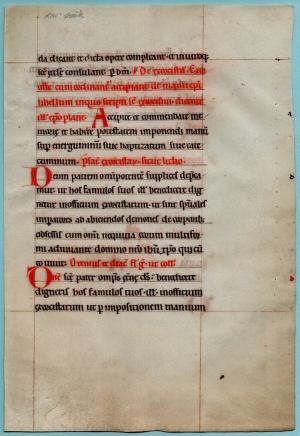 da dicant et dicta opere compleant et in utroq;
sce eccle consulant p dm. De exorcistis. Exor
ciste cum ordinant accipiant de manu epi
libellum in quo scripti st exorcismi dicente
Accipite et commendate me
morie et habete potestatem imponendi manū
sup energuminū siue baptizatum siue cate
cuminum.
Deum patrem omipotentē supplices depca
mur ut hos famulos suos ill benedicere dig
netur in officium exorcistarum ut sint spuales
impatores ad abiciendos demones de corporib;
obsessis cum omi nequitia eorum multifor
mi adiuuante domino nro ihu xpo qui cū
eo uiuit. Oremus et diac
Dne sce pater omps etne ds benedicere
digneris hos famulos tuos ill in officium
exorcistarum ut p impositionem manuum